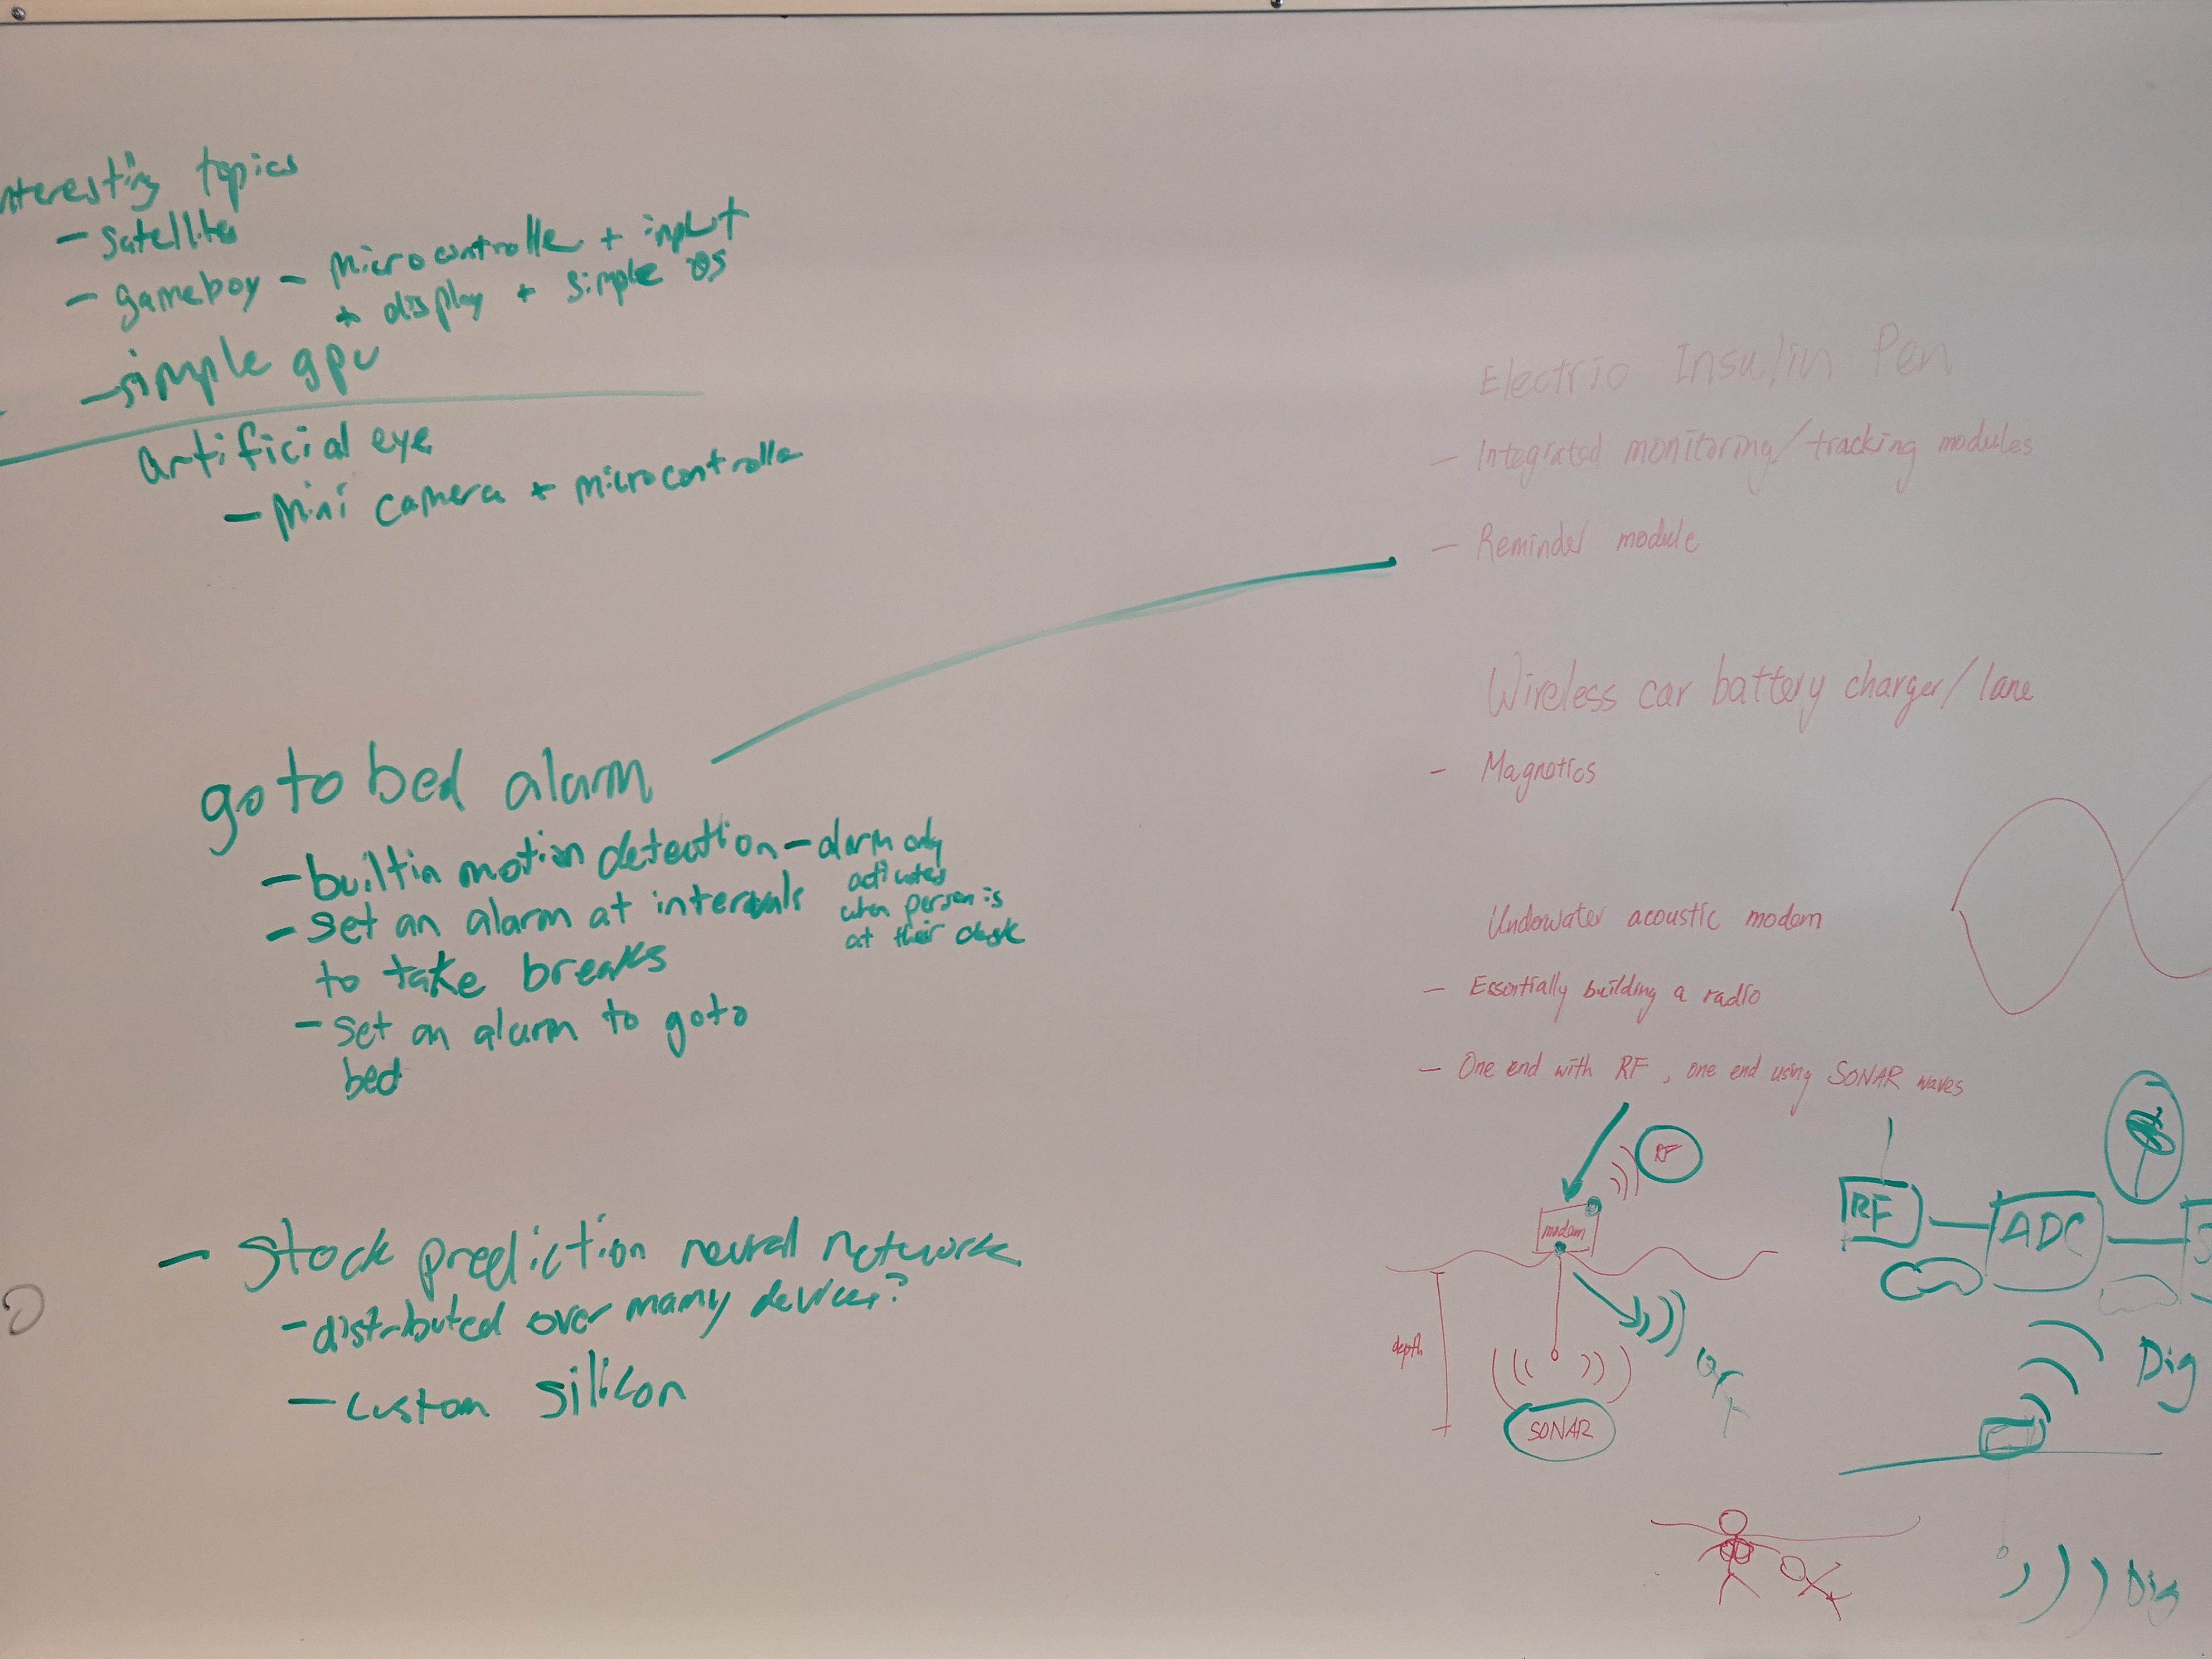 nteresting topics
- satellites
- gameboy - microcontrolle + input
+ display + simple OS
- simple gpu
artificial eye
- mini camera + microcontrolle
go to bed alarm
- builtin motion detection - alarm only
activates
when person is
at their desk
- set an alarm at intervals
to take breaks
- set an alarm to goto
bed
- Stock prediction neural network
- distributed over many devices?
- custom silicon
Electric Insulin Pen
- Integrated monitoring/tracking modules
- Reminder module
Wireless car battery charger/lane
- Magnetics
Underwater acoustic modem
- Essentially building a radio
- One end with RF, one end using SONAR waves
RF
modem
depth
SONAR
RF
ADC
S
Dig
Dig